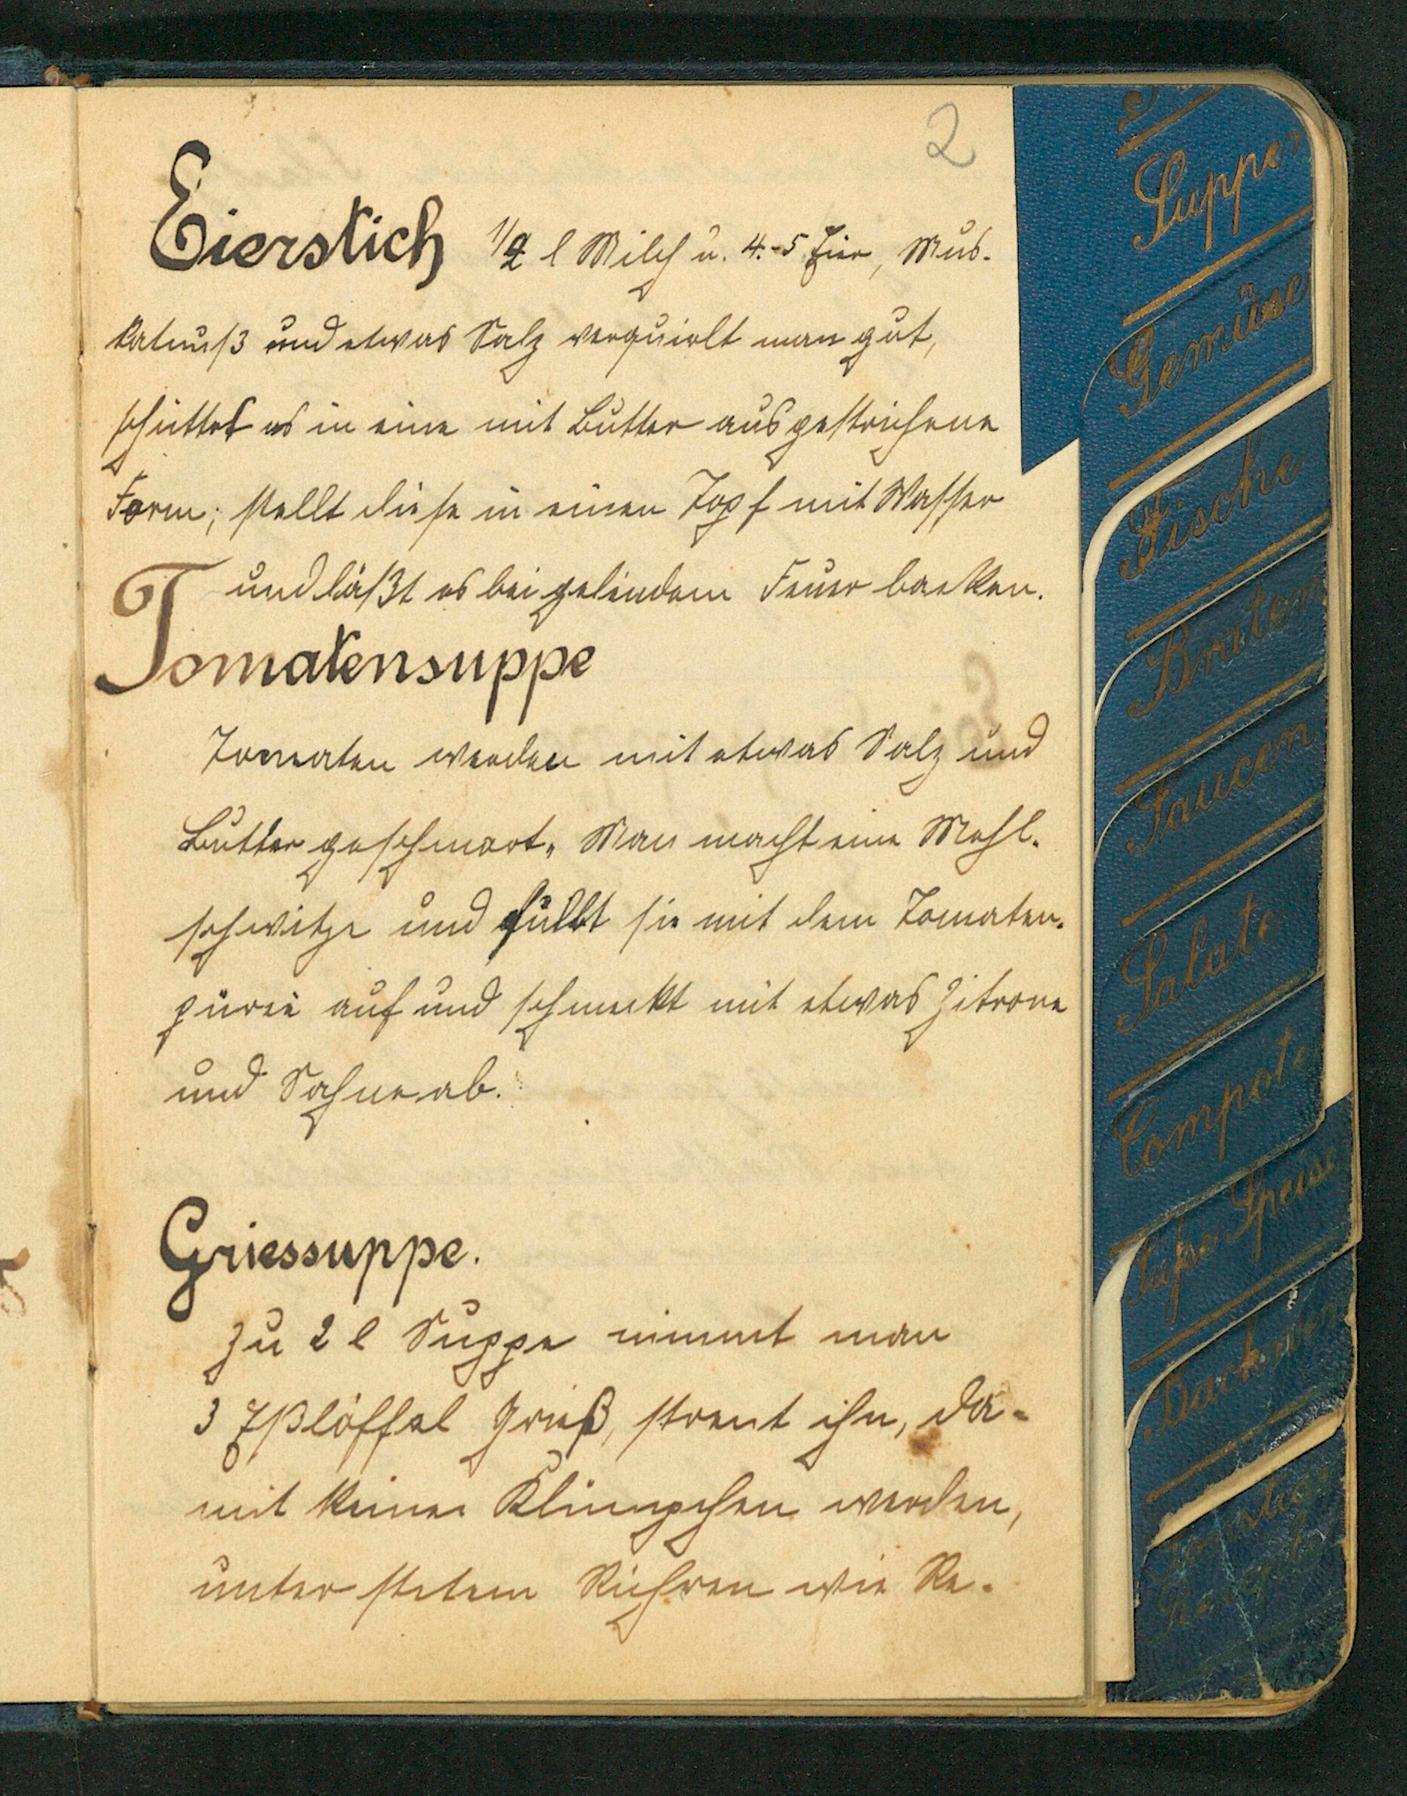 2
Eierstich 1/2 l Milch u. 4.-5 Eier, Mus-
katnuß und etwas Salz verquirlt man gut,
schüttet es in eine mit Butter ausgestrichene
Form; stellt diese in einen Topf mit Wasser
und läßt es bei gelindem Feuer backen.
Tomatensuppe
Tomaten werden mit etwas Salz und
Butter geschmort. Man macht eine Mehl-
schwitze und füllt sie mit dem Tomaten-
püree auf und schmeckt mit etwas Zitrone
und Sahne ab.
Griessuppe.
Zu 2 l Suppe nimmt man
3 Eßlöffel Grieß, streut ihn, da-
mit keine Klümpchen werden,
unter stetem Rühren wie Re-
Suppen
Gemüse
Fische
Braten
Saucen
Salate
Compote
Süße Speise
Backwerk
Sonstige